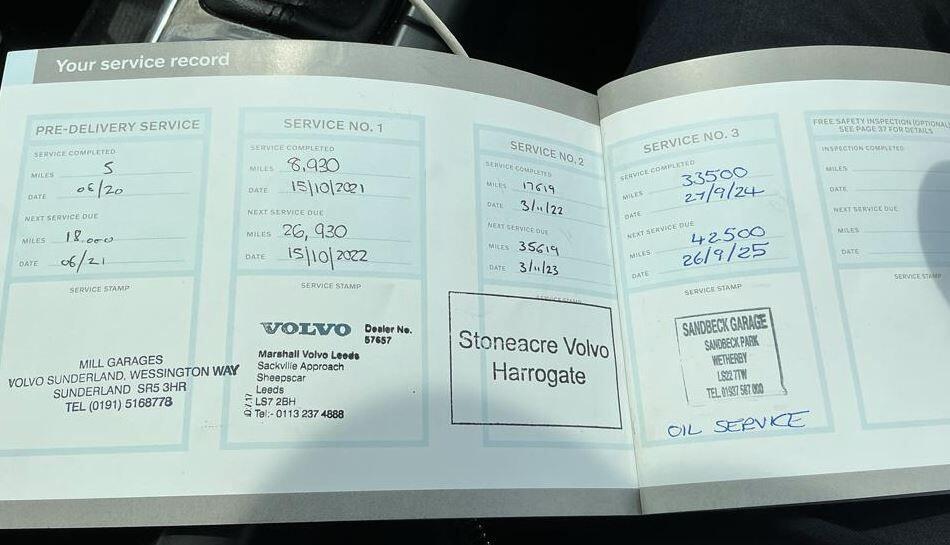 Your service record
PRE-DELIVERY SERVICE
SERVICE COMPLETED
MILES 5
DATE 06/20
NEXT SERVICE DUE
MILES 18,000
DATE 06/21
SERVICE STAMP
MILL GARAGES
VOLVO SUNDERLAND, WESSINGTON WAY
SUNDERLAND SR5 3HR
TEL (0191) 5168778
SERVICE NO. 1
SERVICE COMPLETED
MILES 8,930
DATE 15/10/2021
NEXT SERVICE DUE
MILES 26,930
DATE 15/10/2022
SERVICE STAMP
VOLVO Dealer No.
57657
Marshall Volvo Leeds
Sackville Approach
Sheepscar
Leeds
LS7 2BH
Tel:- 0113 237 4888
SERVICE NO. 2
SERVICE COMPLETED
MILES 17619
DATE 3/11/22
NEXT SERVICE DUE
MILES 35619
DATE 3/11/23
SERVICE STAMP
Stoneacre Volvo
Harrogate
SERVICE NO. 3
SERVICE COMPLETED
MILES 33500
DATE 27/9/24
NEXT SERVICE DUE
MILES 42500
DATE 26/9/25
SERVICE STAMP
SANDBECK GARAGE
SANDBECK PARK
WETHERBY
LS22 7TW
TEL. 01937 587 000
OIL SERVICE
FREE SAFETY INSPECTION (OPTIONAL)
SEE PAGE 37 FOR DETAILS
INSPECTION COMPLETED
MILES
DATE
NEXT SERVICE DUE
MILES
DATE
SERVICE STAMP